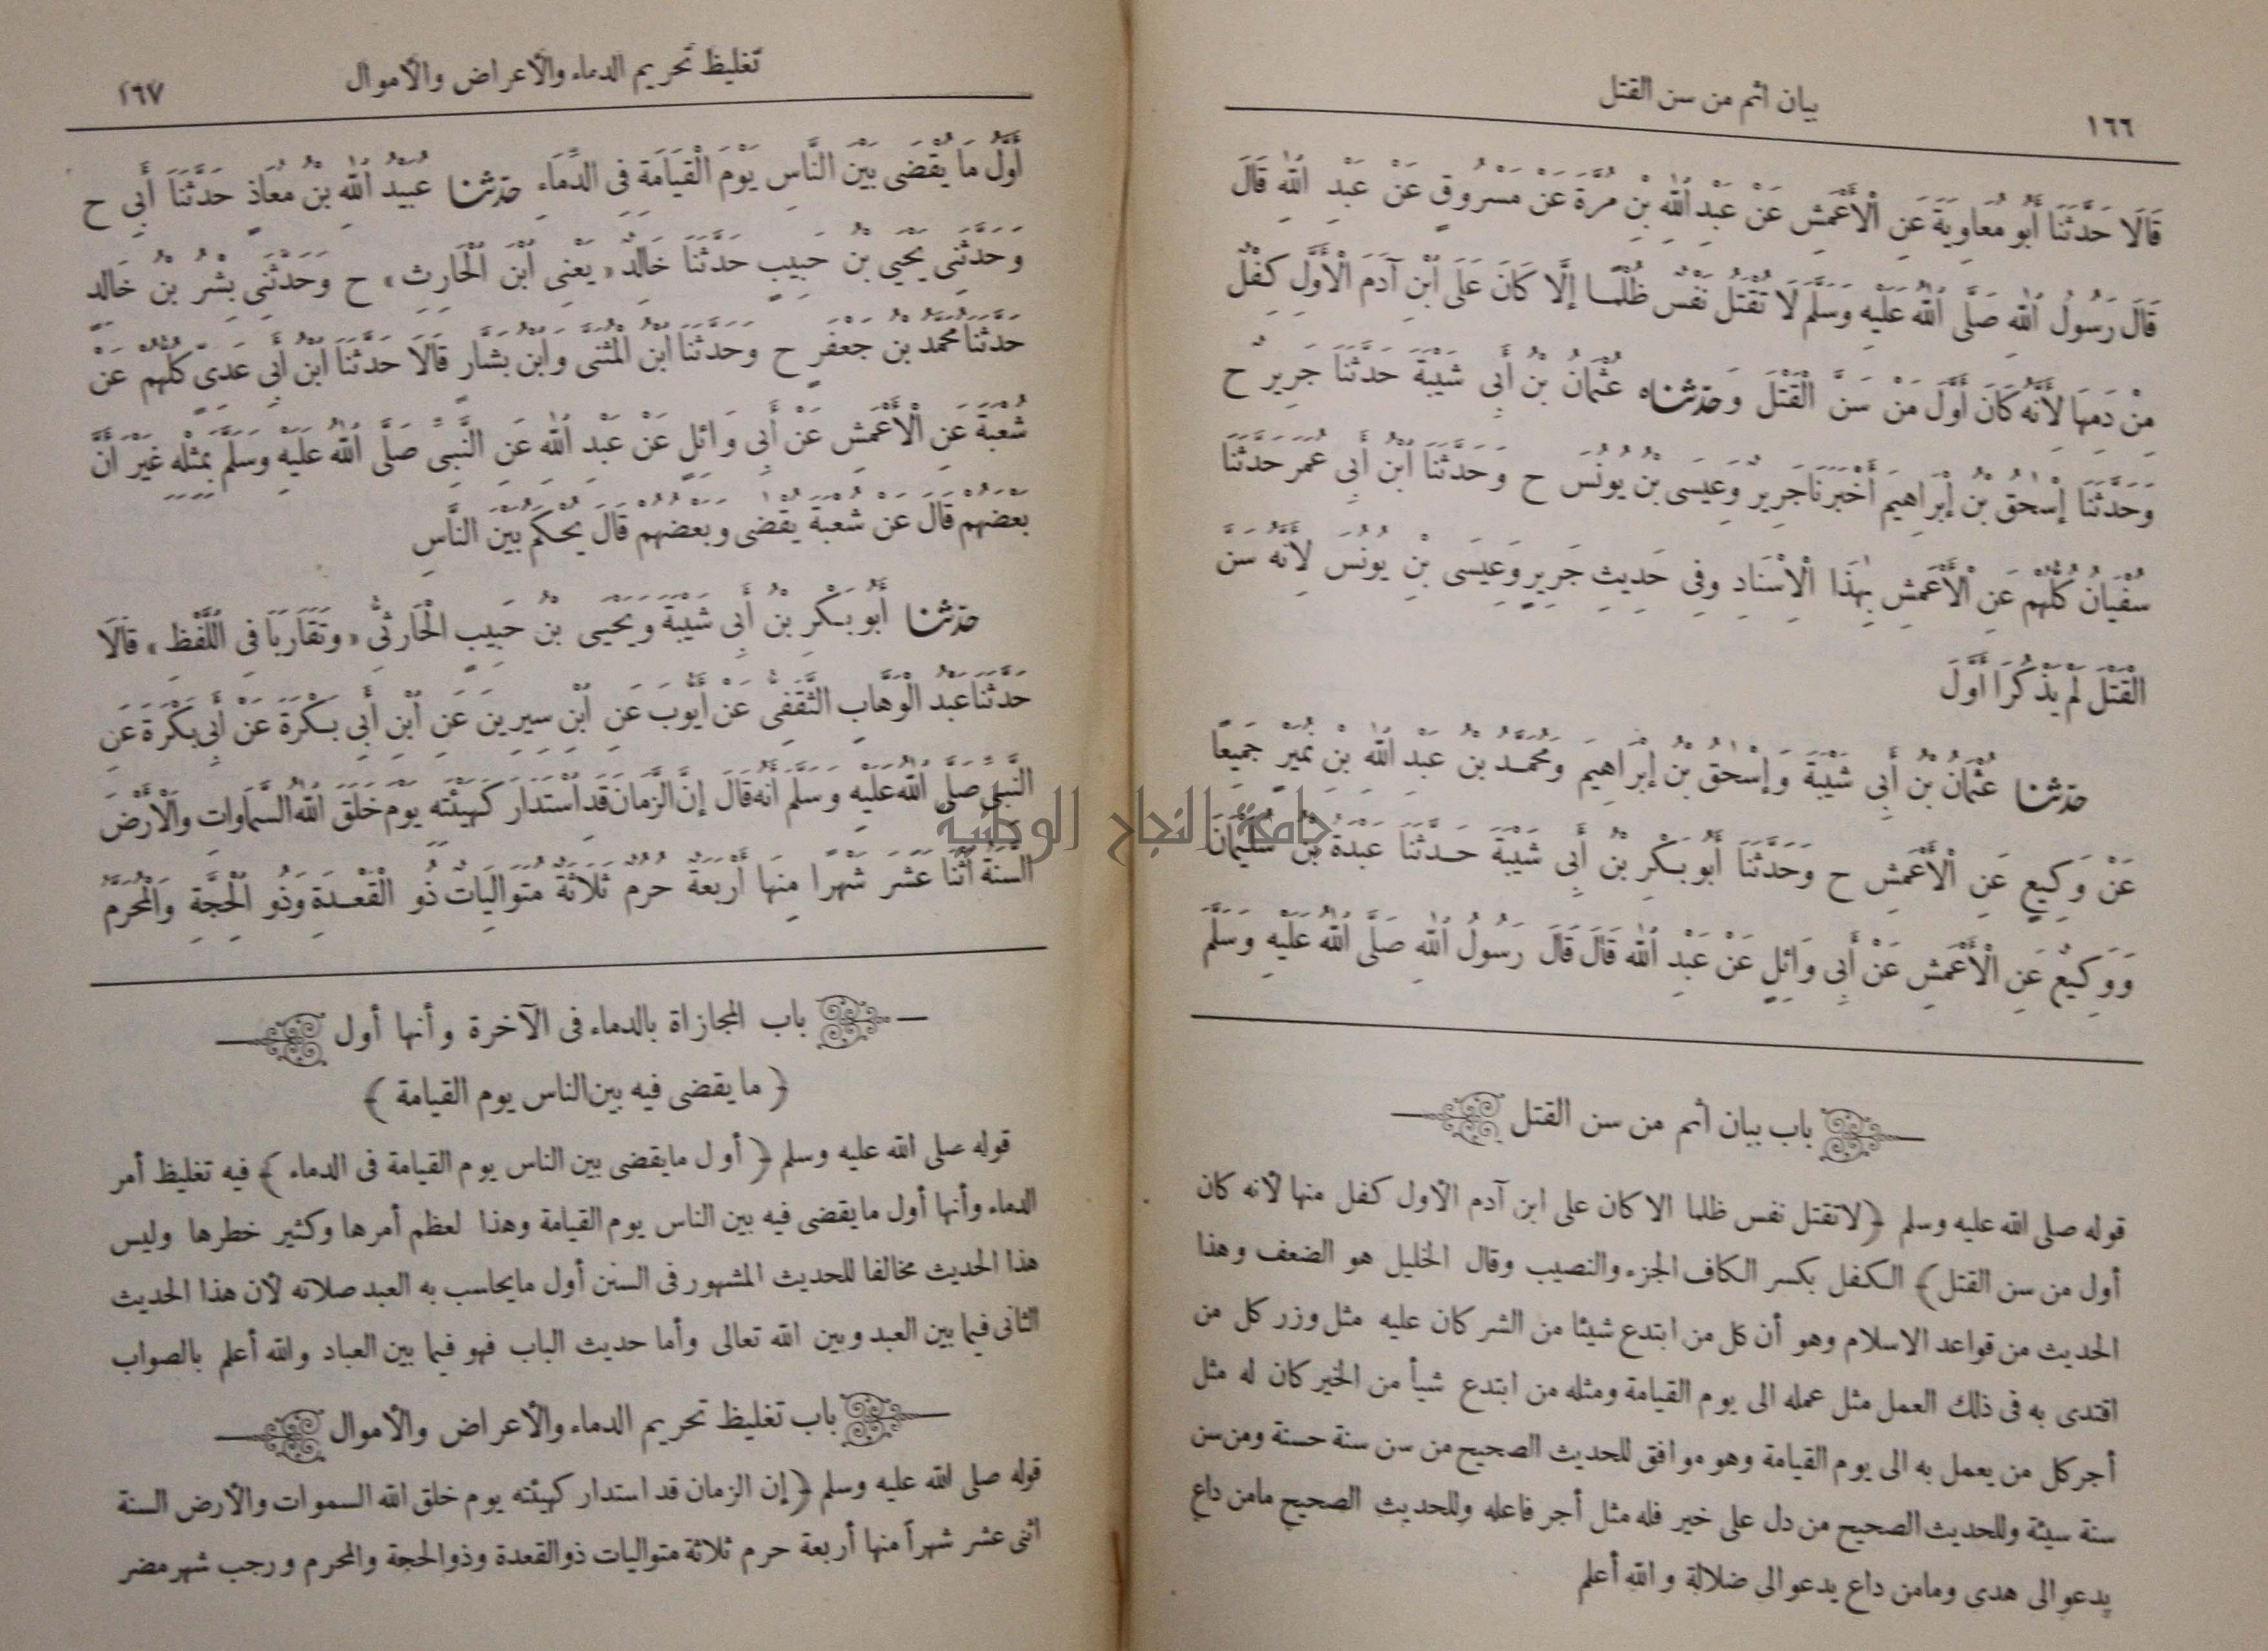 بيان اثم من سن القتل
١٦٦
قَالَا حَدَّثَنَا أَبُو مُعَاوِيَةَ عَنِ الْأَعْمَشِ عَنْ عَبْدِ اللهِ بْنِ مُرَّةَ عَنْ مَسْرُوقٍ عَنْ عَبْدِ اللهِ قَالَ
قَالَ رَسُولُ اللهِ صَلَّى اللهُ عَلَيْهِ وَسَلَّمَ لَا تُقْتَلُ نَفْسٌ ظُلْمًا إِلَّا كَانَ عَلَى ابْنِ آدَمَ الْأَوَّلِ كِفْلٌ
مِنْ دَمِهَا لِأَنَّهُ كَانَ أَوَّلَ مَنْ سَنَّ الْقَتْلَ وَحَدَّثَنَاهُ عُثْمَانُ بْنُ أَبِي شَيْبَةَ حَدَّثَنَا جَرِيرٌ ح
وَحَدَّثَنَا إِسْحَقُ بْنُ إِبْرَاهِيمَ أَخْبَرَنَا جَرِيرٌ وَعِيسَى بْنُ يُونُسَ ح وَحَدَّثَنَا ابْنُ أَبِي عُمَرَ حَدَّثَنَا
سُفْيَانُ كُلُّهُمْ عَنِ الْأَعْمَشِ بِهَذَا الْإِسْنَادِ وَفِي حَدِيثِ جَرِيرٍ وَعِيسَى بْنِ يُونُسَ لِأَنَّهُ سَنَّ
الْقَتْلَ لَمْ يَذْكُرَا أَوَّلَ
حدثنا عُثْمَانُ بْنُ أَبِي شَيْبَةَ وَإِسْحَقُ بْنُ إِبْرَاهِيمَ وَمُحَمَّدُ بْنُ عَبْدِ اللهِ بْنِ نُمَيْرٍ جَمِيعًا
عَنْ وَكِيعٍ عَنِ الْأَعْمَشِ ح وَحَدَّثَنَا أَبُو بَكْرِ بْنُ أَبِي شَيْبَةَ حَدَّثَنَا عَبْدَةُ بْنُ سُلَيْمَانَ
وَوَكِيعٌ عَنِ الْأَعْمَشِ عَنْ أَبِي وَائِلٍ عَنْ عَبْدِ اللهِ قَالَ قَالَ رَسُولُ اللهِ صَلَّى اللهُ عَلَيْهِ وَسَلَّمَ
باب بيان اثم من سن القتل
قوله صلى الله عليه وسلم ﴿لاتقتل نفس ظلما الا كان على ابن آدم الأول كفل منها لأنه كان
أول من سن القتل﴾ الكفل بكسر الكاف الجزء والنصيب وقال الخليل هو الضعف وهذا
الحديث من قواعد الاسلام وهو أن كل من ابتدع شيئا من الشر كان عليه مثل وزر كل من
اقتدى به فى ذلك العمل مثل عمله الى يوم القيامة ومثله من ابتدع شيأ من الخير كان له مثل
أجر كل من يعمل به الى يوم القيامة وهو موافق للحديث الصحيح من سن سنة حسنة ومن سن
سنة سيئة وللحديث الصحيح من دل على خير فله مثل أجر فاعله وللحديث الصحيح مامن داع
يدعو الى هدى ومامن داع يدعو الى ضلالة والله أعلم
تغليظ تحريم الدماء والأعراض والأموال
١٦٧
أَوَّلُ مَا يُقْضَى بَيْنَ النَّاسِ يَوْمَ الْقِيَامَةِ فِي الدِّمَاءِ حدثنا عُبَيْدُ اللهِ بْنُ مُعَاذٍ حَدَّثَنَا أَبِي ح
وَحَدَّثَنِي يَحْيَى بْنُ حَبِيبٍ حَدَّثَنَا خَالِدٌ «يَعْنِي ابْنَ الْحَارِثِ» ح وَحَدَّثَنِي بِشْرُ بْنُ خَالِدٍ
حَدَّثَنَا مُحَمَّدُ بْنُ جَعْفَرٍ ح وَحَدَّثَنَا ابْنُ الْمُثَنَّى وَابْنُ بَشَّارٍ قَالَا حَدَّثَنَا ابْنُ أَبِي عَدِيٍّ كُلُّهُمْ عَنْ
شُعْبَةَ عَنِ الْأَعْمَشِ عَنْ أَبِي وَائِلٍ عَنْ عَبْدِ اللهِ عَنِ النَّبِيِّ صَلَّى اللهُ عَلَيْهِ وَسَلَّمَ بِمِثْلِهِ غَيْرَ أَنَّ
بَعْضَهُمْ قَالَ عَنْ شُعْبَةَ يُقْضَى وَبَعْضُهُمْ قَالَ يُحْكَمُ بَيْنَ النَّاسِ
حدثنا أَبُو بَكْرِ بْنُ أَبِي شَيْبَةَ وَيَحْيَى بْنُ حَبِيبٍ الْحَارِثِيُّ «وَتَقَارَبَا فِي اللَّفْظِ» قَالَا
حَدَّثَنَا عَبْدُ الْوَهَّابِ الثَّقَفِيُّ عَنْ أَيُّوبَ عَنِ ابْنِ سِيرِينَ عَنِ ابْنِ أَبِي بَكْرَةَ عَنْ أَبِي بَكْرَةَ عَنِ
النَّبِيِّ صَلَّى اللهُ عَلَيْهِ وَسَلَّمَ أَنَّهُ قَالَ إِنَّ الزَّمَانَ قَدِ اسْتَدَارَ كَهَيْئَتِهِ يَوْمَ خَلَقَ اللهُ السَّمَاوَاتِ وَالْأَرْضَ
السَّنَةُ اثْنَا عَشَرَ شَهْرًا مِنْهَا أَرْبَعَةٌ حُرُمٌ ثَلَاثَةٌ مُتَوَالِيَاتٌ ذُو الْقَعْدَةِ وَذُو الْحِجَّةِ وَالْمُحَرَّمُ
باب المجازاة بالدماء فى الآخرة وأنها أول
﴿ ما يقضى فيه بين الناس يوم القيامة ﴾
قوله صلى الله عليه وسلم ﴿ أول مايقضى بين الناس يوم القيامة فى الدماء ﴾ فيه تغليظ أمر
الدماء وأنها أول ما يقضى فيه بين الناس يوم القيامة وهذا لعظم أمرها وكثير خطرها وليس
هذا الحديث مخالفا للحديث المشهور فى السنن أول مايحاسب به العبد صلاته لأن هذا الحديث
الثانى فيما بين العبد وبين الله تعالى وأما حديث الباب فهو فيما بين العباد والله أعلم بالصواب
باب تغليظ تحريم الدماء والأعراض والأموال
قوله صلى الله عليه وسلم ﴿إن الزمان قد استدار كهيئته يوم خلق الله السموات والأرض السنة
اثنى عشر شهراً منها أربعة حرم ثلاثة متواليات ذو القعدة وذو الحجة والمحرم ورجب شهر مضر
جامعة النجاح الوطنية